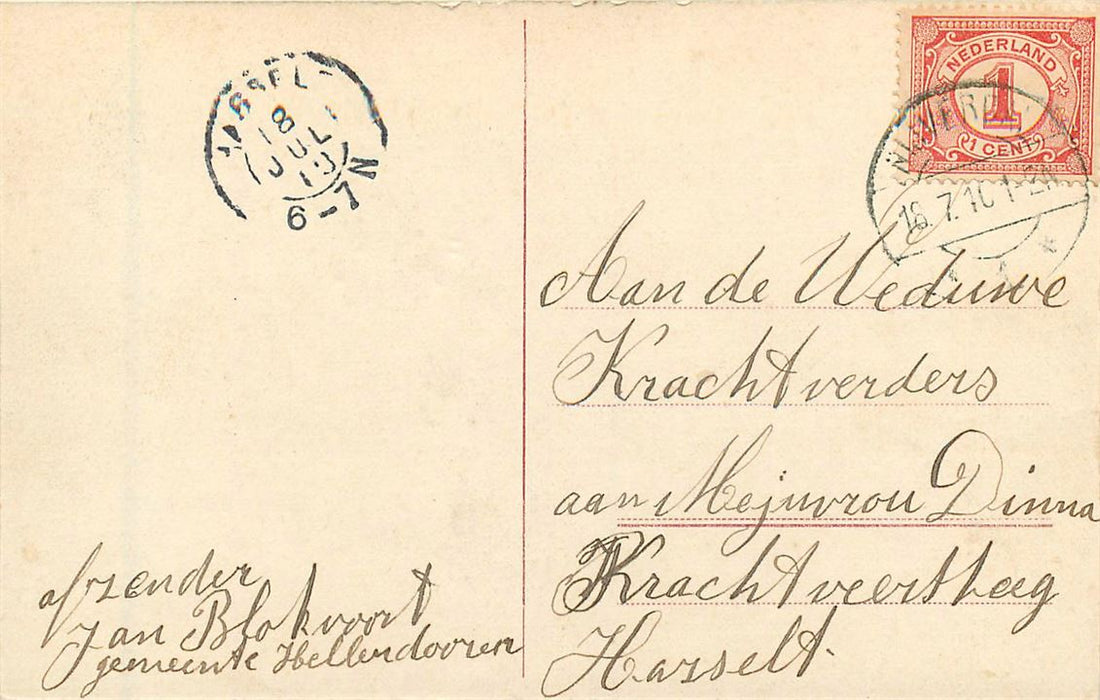 NEDERLAND
1
1 CENT
18
JUL
10
6-7N
16.7.10 1-2N
Aan de Weduwe
Krachtverders
aan Mejuvrou Dinna
Krachtveersteeg
Hasselt.
afzender
Jan Blokvoort
gemeente Hellendooren